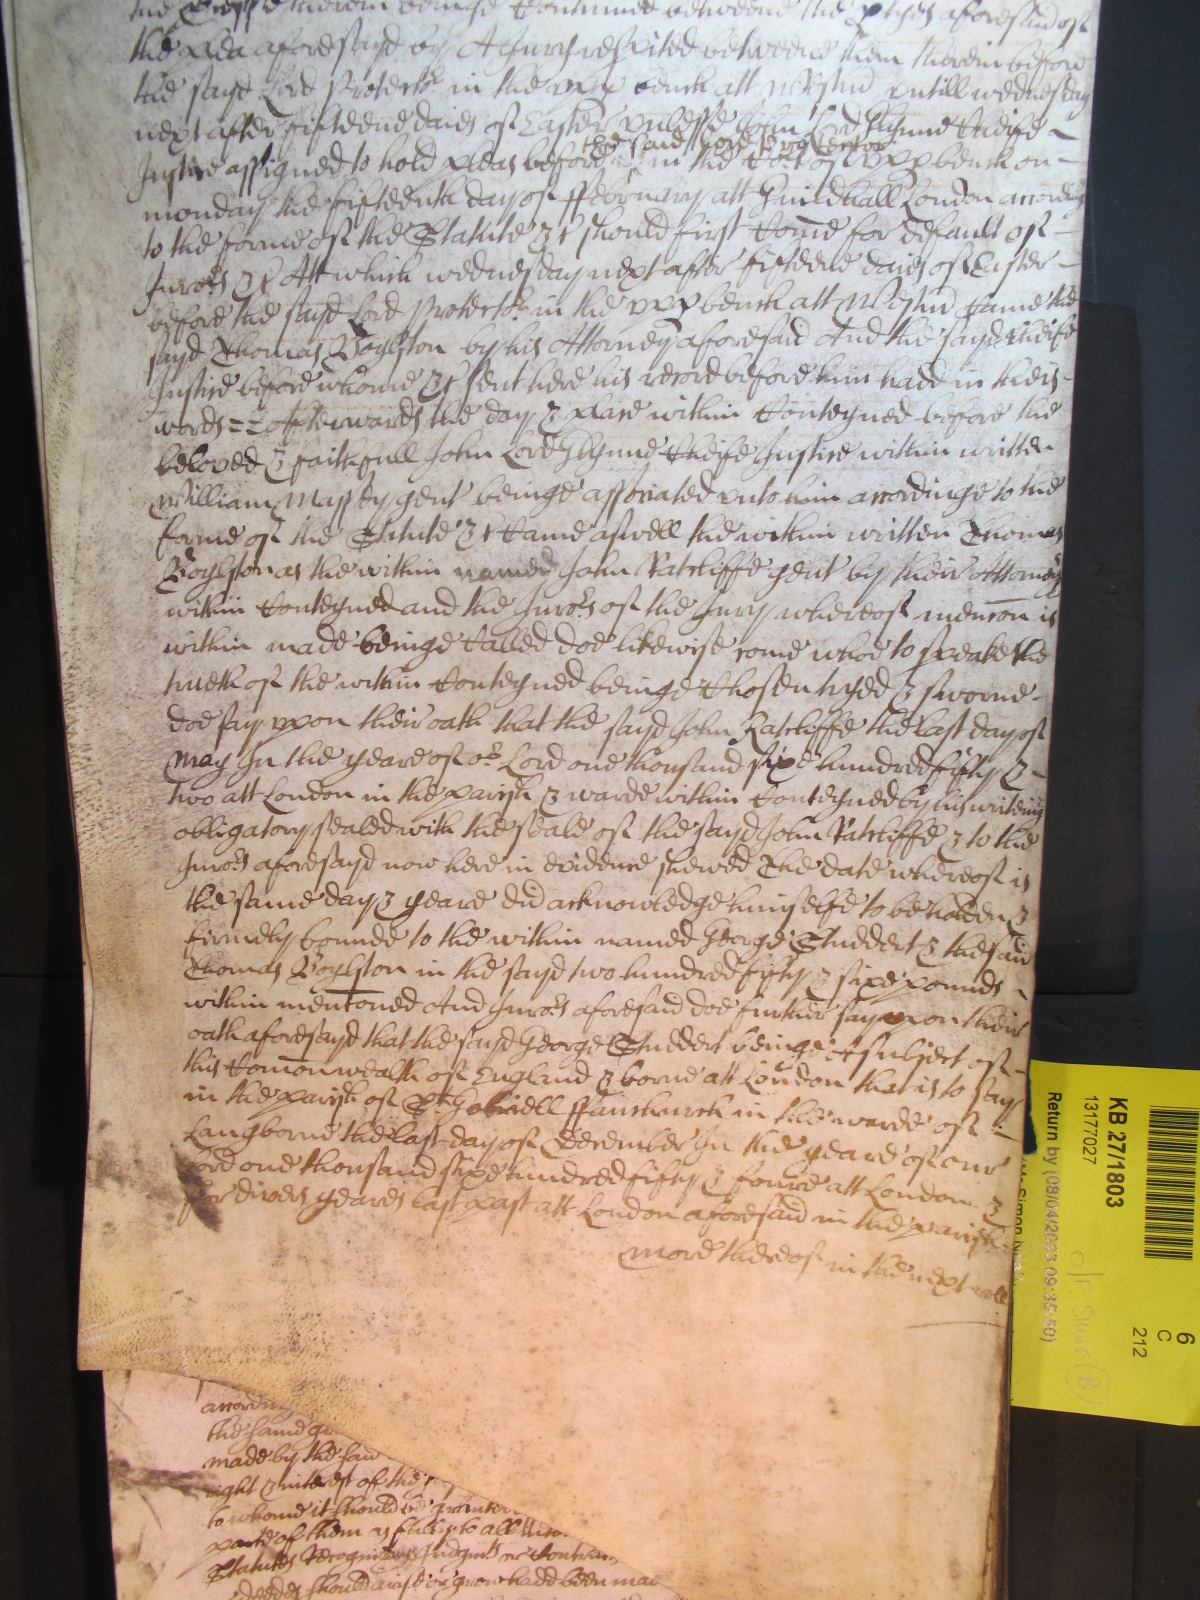 the Processe therein beinge Continued betweene the ptyes aforesaid of
the plea aforesayd by A Jury respited betweene them therein before
the sayd Lord Protector in the vpp bench att Westm vntill wednesday
next after fifteene daies of Easter vnlesse John Lord Glynne Cheife
the said Lord Protector
Justice assigned to hold pleas before in the Cort of vpp bench on
monday the fifteenth day of ffebruary att Guildhall London according
to the forme of the Statute &c should first Come for default of
Juro:rs &c Att which wednesday next after fifteene daies of Easter
before the sayd Lord Protector in the vpp bench att Westm Came the
sayd Thomas Boylston by his Attorney aforesaid And the sayd Cheife
Justice before whome &c sent here his record before him hadd in theis
words == Afterwards the day & place within Conteyned before the
beloved & faithfull John Lord Glynne Cheife Justice within written
William Massey gent beinge associated vnto him accordinge to the
forme of the Statute &c Came aswell the within written Thomas
Boylston as the within named John Ratcliffe gent by their Attorneys
within Conteyned and the Juro:rs of the Jury whereof mencon is
within made beinge Called doe likewise come whoe to speake the
trueth of the within Conteyned beinge Chosen tryed & sworne
doe say vpon their oath that the sayd John Ratcliffe the last day of
May In the yeare of or Lord one thousand sixe hundred fifty &
two att London in the parish & warde within Conteyned by his writeing
obligatory sealed with the seale of the sayd John Ratcliffe & to the
Juro:rs aforesayd now here in evidence shewed The date whereof is
the same day & yeare did acknowledge himselfe to be holden &
firmely bounde to the within named George Studdert & the said
Thomas Boylston in the sayd two hundred fifty & sixe pounds
within mentoned And Juro:rs aforesaid doe further say vpon their
oath aforesayd that the sayd George Studdert beinge A subject of
this Comonwealth of England & borne att London that is to say
in the parish of St. Gabriell ffanchurch in the warde of
Langborne the last day of December In the yeare of our
Lord one thousand sixe hundred fifty & foure att London &
for divers yeares last past att London aforesaid in the parish
more thereof in the next roll
according
the same
made by the said
right & interest of the
to whome it should be graunted
parte of them as fully to all
Statutes Recogni Judgmts or Contrac
deedes should arise or grow hadd been mad
KB 27/1803
13177027
Return by (08/04/2023 09:35:50)
6
C
212